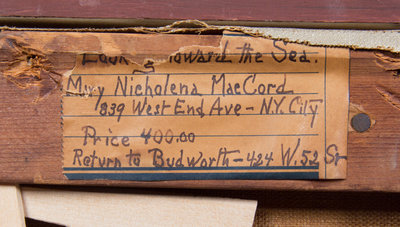 Looking Toward the Sea.
Mary Nicholena MacCord
839 West End Ave - N.Y. City
Price 400.00
Return to Budworth - 424 W. 52 St